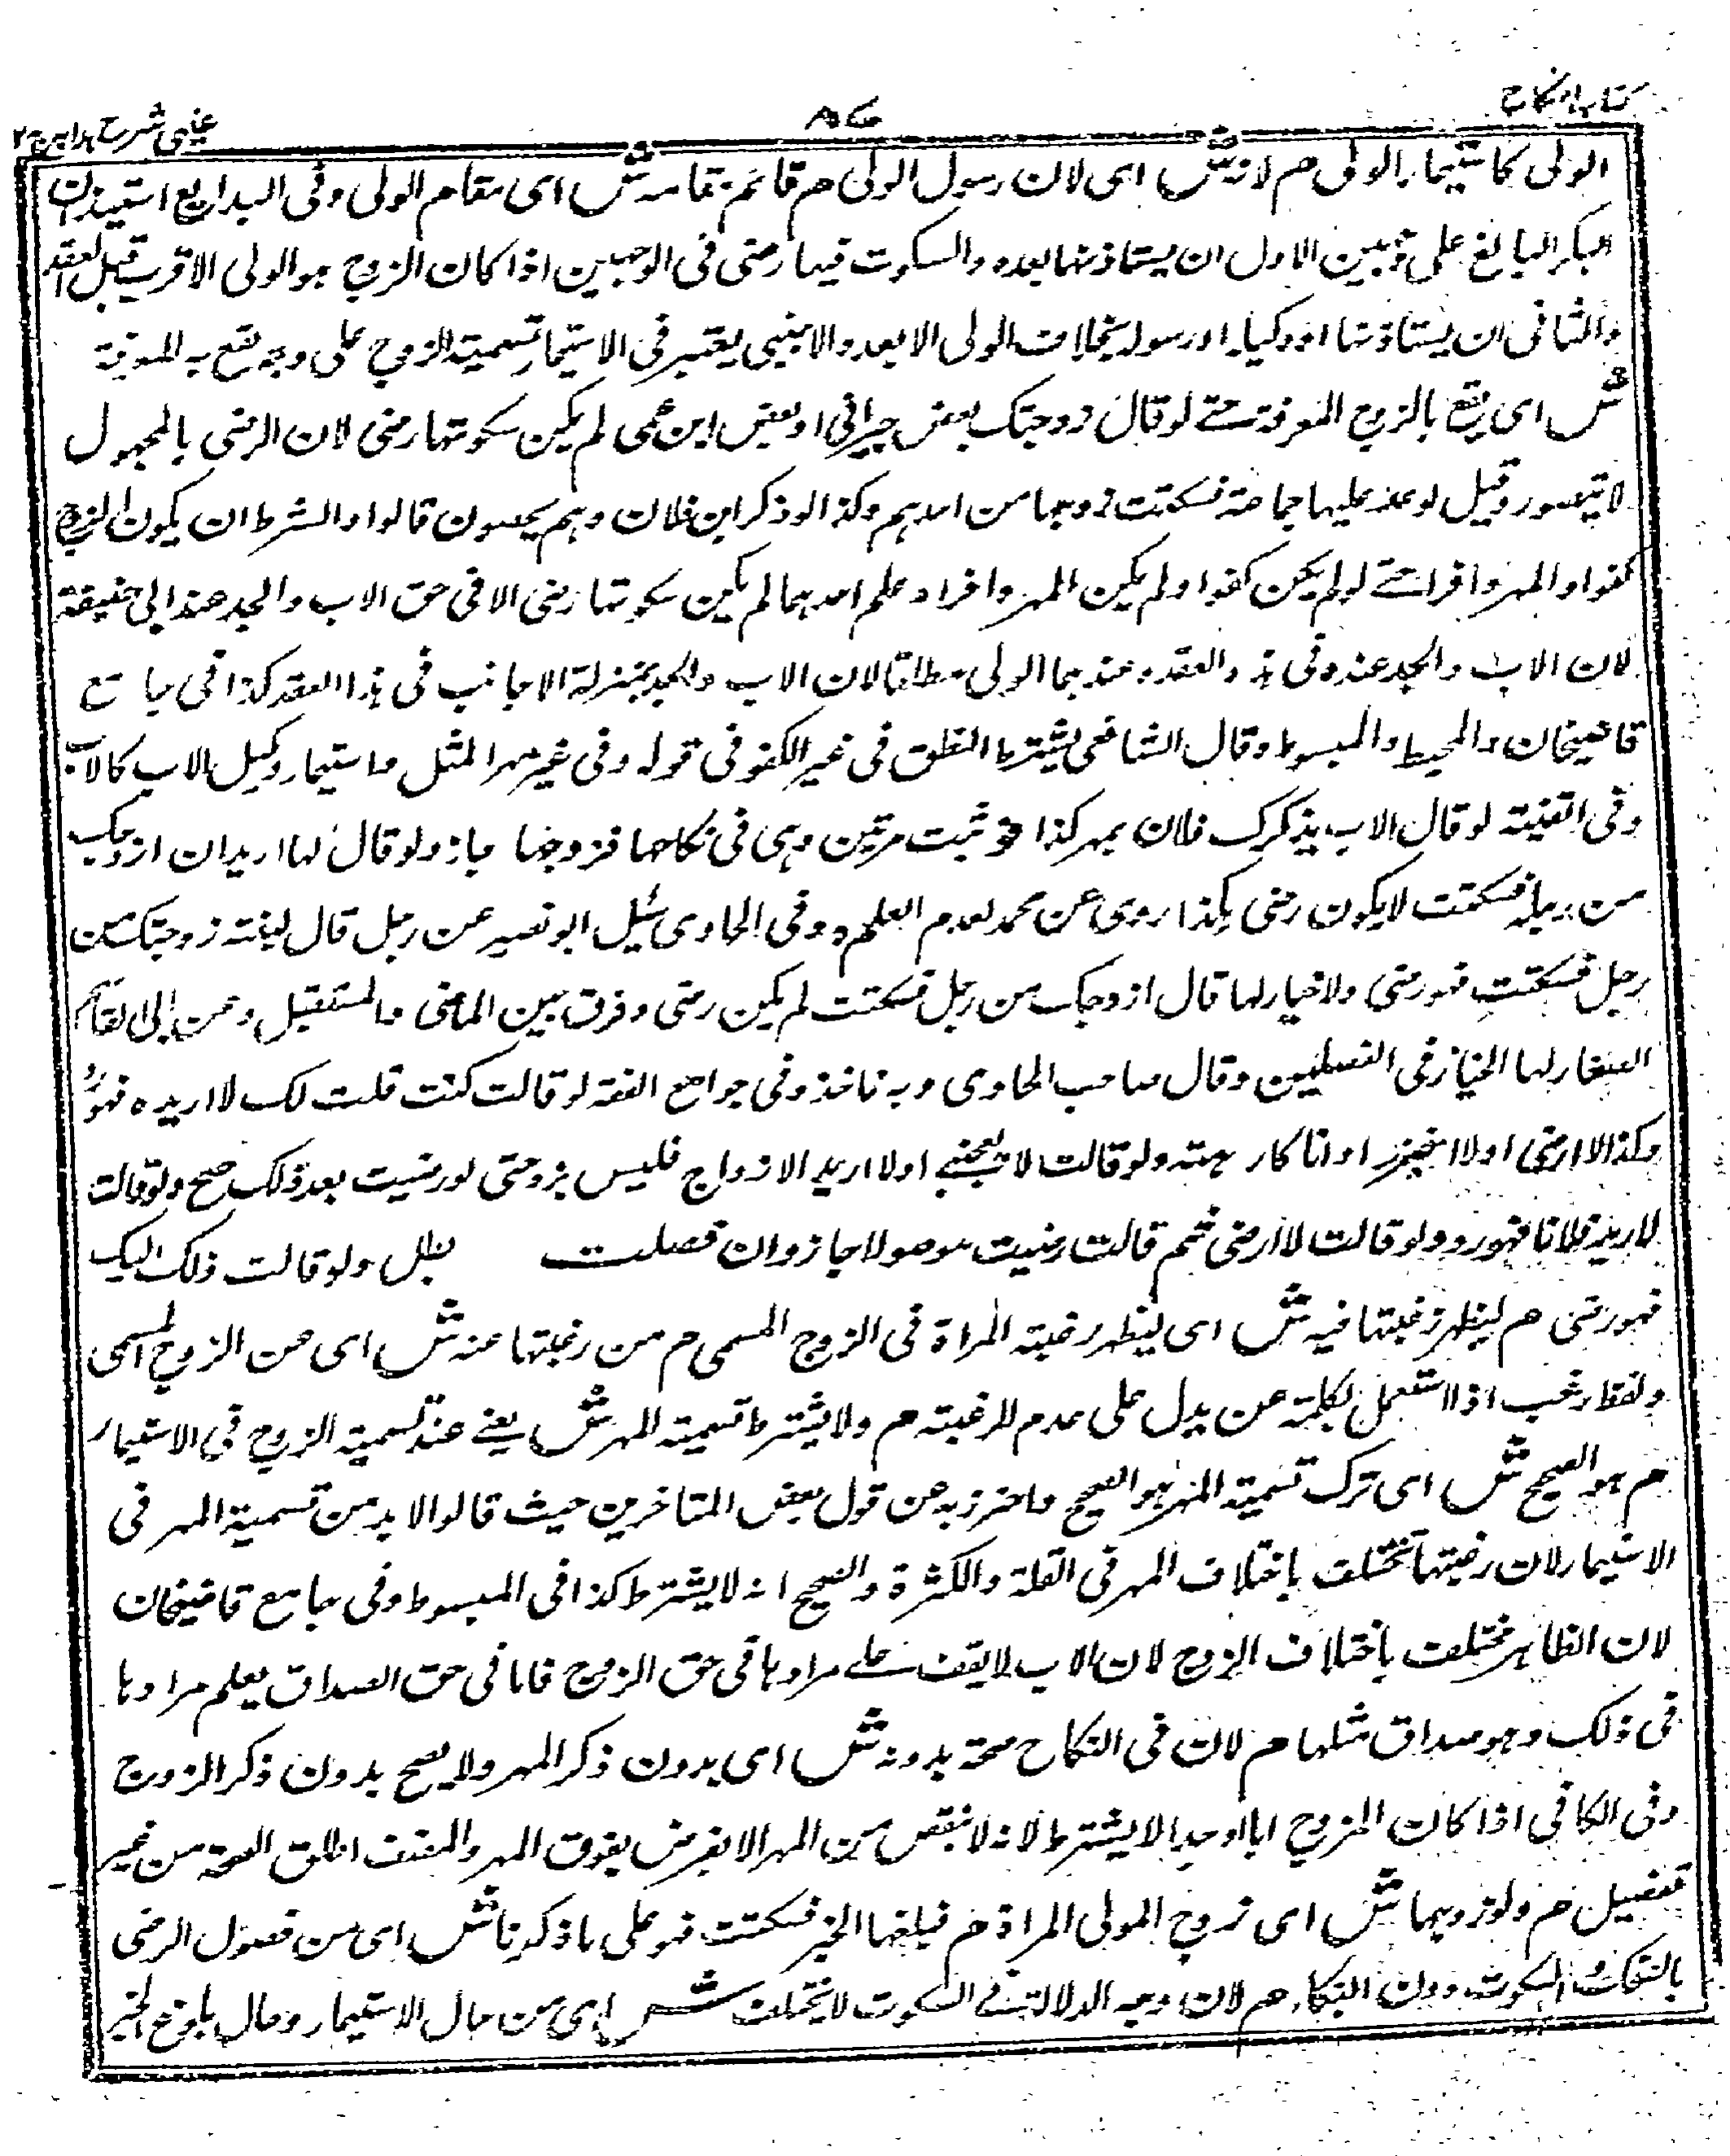 كتاب النكاح
٨٧
عينى شرح هدايه ج ٢
الولى كاستيمار الولى م لانه ش اى لان رسول الولى م قائم مقامه ش اى مقام الولى وفى البدايع استيذان
البكر البالغ على وجهين الاول ان يستاذنها بعده والسكوت فيها رضى فى الوجهين اذا كان الزوج هو الولى الاقرب قبل العقد
والثانى ان يستاذنها او وكيله او رسوله بخلاف الولى الابعد والاجنبى يعتبر فى الاستيمار تسمية الزوج على وجه تقع به المعرفة
ش اى يقع بالزوج المعرفة حتے لو قال زوجتك بعض جيرانى او بعض ابن عمى لم يكن سكوتها رضى لان الرضى بالمجهول
لا يتصور وقيل لو عد عليها جماعة فسكتت زوجها من احدهم وكذا لو ذكر ابن فلان وهم يحصون قالوا والشرط ان يكون الزوج
كفوا والمهر وافرا حتے لو لم يكن كفوا ولم يكن المهر وافرا وعلم احدهما لم يكن سكوتها رضى الا فى حق الاب والجد عند ابى حنيفة
لان الاب والجد عنده فى هذ والعقد وعندهما الولى مطلقا لان الاب والجد بمنزلة الاجانب فى هذا العقد كذا فى جامع
قاضيخان والمحيط والمبسوط وقال الشافعى يشترط النطق فى غير الكفو فى قوله وفى غير مهر المثل واستيمار وكيل الاب كالاب
وفى القنية لو قال الاب يذكرك فلان بمهر كذا فوثبت مرتين وهى فى نكاحها فزوجها جاز ولو قال لها اريد ان ازوجك
من رجل فسكتت لا يكون رضى هكذا روى عن محمد لعدم العلم وفى الحاوى سئل ابو نصير عن رجل قال لبنته زوجتك من
رجل فسكتت فهو رضى ولا خيار لها قال ازوجك من رجل فسكتت لم يكن رضى وفرق بين الماضى والمستقبل وعن ابى القاسم
الصفار لها الخيار فى الفصلين وقال صاحب الحاوى وبه ناخذ وفى جوامع الفقه لو قالت كنت قلت لك لا اريده فهو رد
وكذا لا ارضى او لا اجيز او انا كارهته ولو قالت لا يعجبنے او لا اريد الازواج فليس برد حتى لو رضيت بعد ذلك صح ولو قالت
لا اريد فلانا فهو رد ولو قالت لا ارضى ثم قالت رضيت موصولا جاز وان فصلت بطل ولو قالت ذلك اليك
فهو رضى م ليظهر رغبتها فيه ش اى ليظهر رغبة المراة فى الزوج المسمى م من رغبتها عنه ش اى عن الزوج المسمى
ولفظ رغب اذا استعمل بكلمة عن يدل على عدم الرغبة م ولا يشترط تسمية المهر ش يعنے عند تسمية الزوج فى الاستيمار
م هو الصحيح ش اى ترك تسمية المهر هو الصحيح واحترز به عن قول بعض المتاخرين حيث قالوا لا بد من تسمية المهر فى
الاستيمار لان رغبتها تختلف باختلاف المهر فى القلة والكثرة والصحيح انه لا يشترط كذا فى المبسوط وفى جامع قاضيخان
لان الظاهر مختلف باختلاف الزوج لان الاب لا يقف علے مرادها فى حق الزوج فاما فى حق الصداق يعلم مرادها
فى ذلك وهو صداق مثلها م لان فى النكاح صحة بدونه ش اى بدون ذكر المهر ولا يصح بدون ذكر الزوج
وفى الكافى اذا كان المزوج ابا او جدا لا يشترط لانه لا ينقص من المهر الا بغرض يفوق المهر والمصنف اطلق الصحة من غير
تفصيل م ولو زوجها ش اى زوج المولى المراة م فبلغها الخبر فسكتت فهو على ما ذكرنا ش اى من فصول الرضى
بالضحك والسكوت دون البكاء م لان وجه الدلالة فے السكوت لا يختلف ش اى من حال الاستيمار وحال بلوغ الخبر